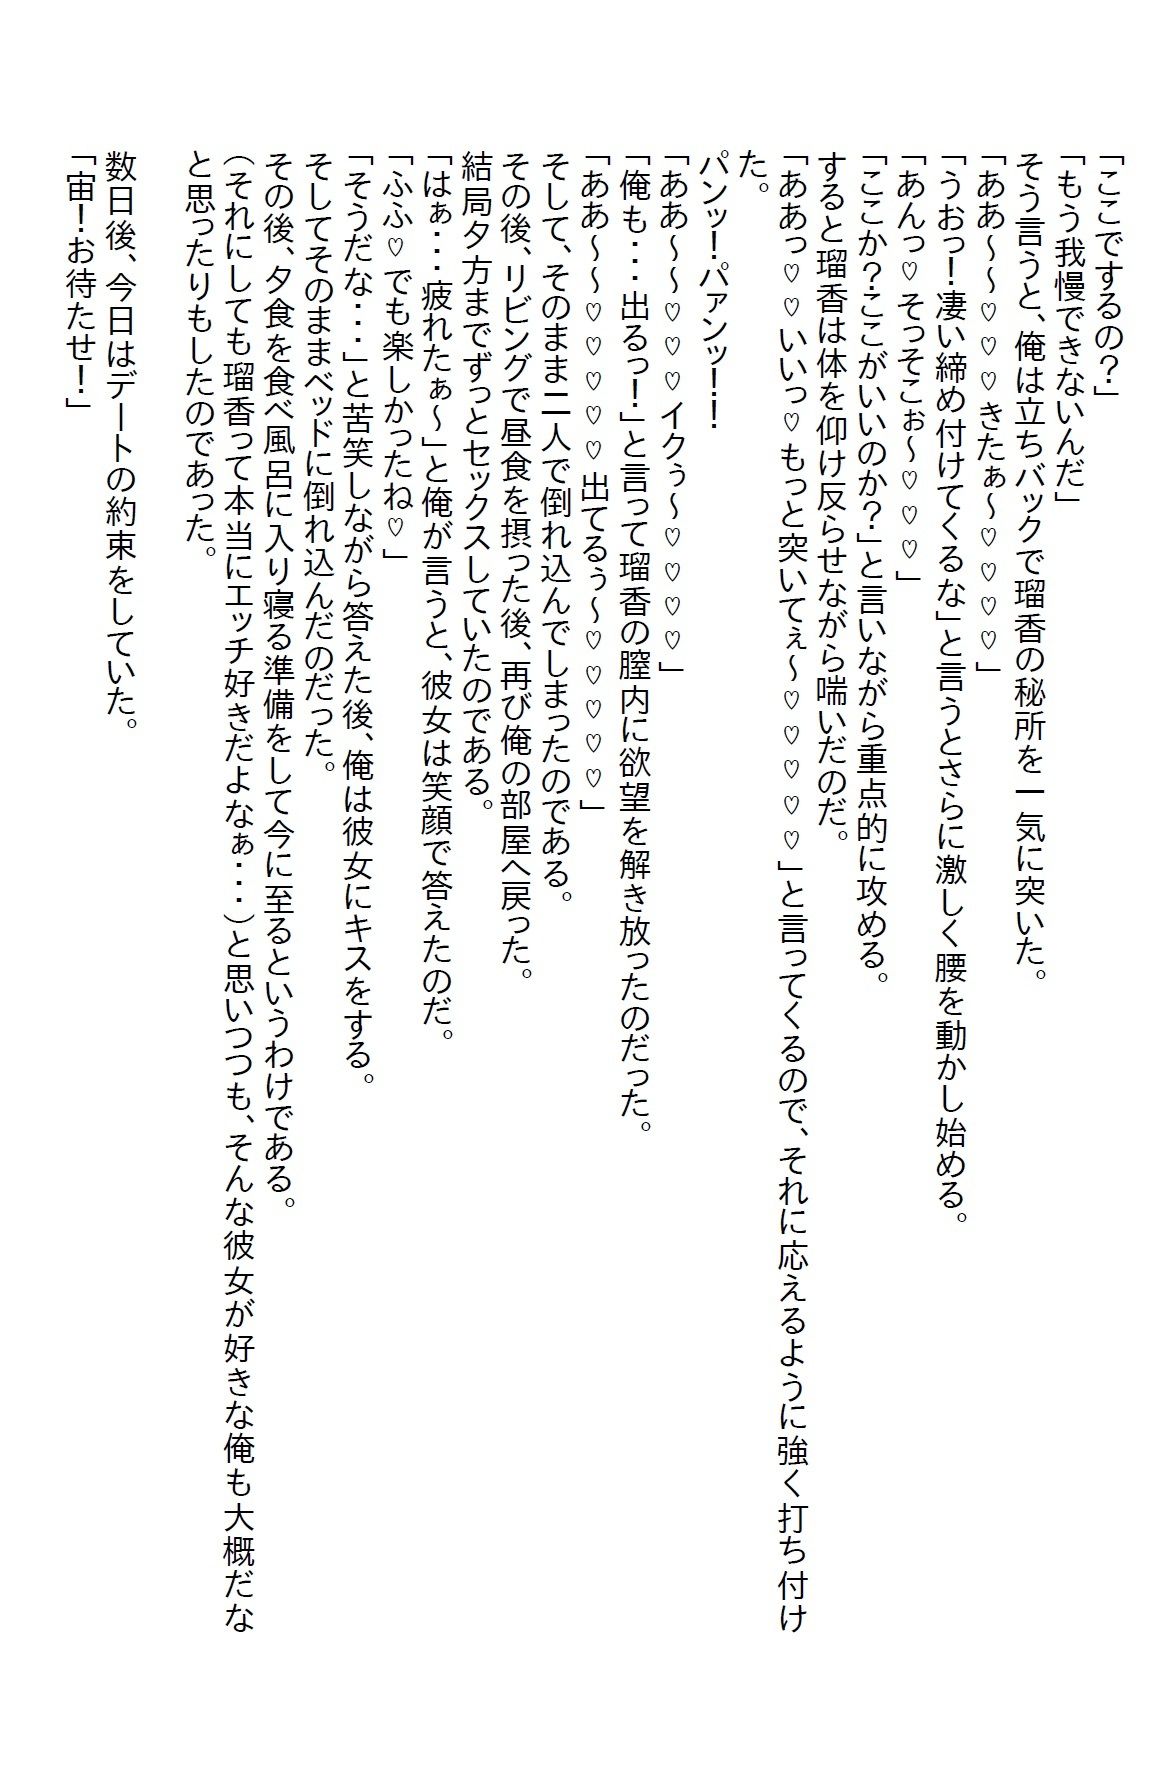 「ここでするの?」
「もう我慢できないんだ」
そう言うと、俺は立ちバックで瑠香の秘所を一気に突いた。
「ああ～～♡♡♡きたぁ～♡♡♡♡」
「うおっ!凄い締め付けてくるな」と言うとさらに激しく腰を動かし始める。
「あんっ♡そっそこぉ～♡♡♡」
「ここか?ここがいいのか?」と言いながら重点的に攻める。
すると瑠香は体を仰け反らせながら喘いだのだ。
「ああっ♡♡いいっ♡もっと突いてぇ～♡♡♡♡♡」と言ってくるので、それに応えるように強く打ち付け
た。
パンッ!パァンッ!!
「ああ～～♡♡♡イクぅ～♡♡♡♡」
「俺も・・・出るっ!」と言って瑠香の膣内に欲望を解き放ったのだった。
「ああ～～♡♡♡♡♡出てるぅ～♡♡♡♡♡」
そして、そのまま二人で倒れ込んでしまったのである。
その後、リビングで昼食を摂った後、再び俺の部屋へ戻った。
結局夕方までずっとセックスしていたのである。
「はぁ・・・疲れたぁ～」と俺が言うと、彼女は笑顔で答えたのだ。
「ふふ♡でも楽しかったね♡」
「そうだな・・・」と苦笑しながら答えた後、俺は彼女にキスをする。
そしてそのままベッドに倒れ込んだのだった。
その後、夕食を食べ風呂に入り寝る準備をして今に至るというわけである。
(それにしても瑠香って本当にエッチ好きだよなぁ・・・)と思いつつも、そんな彼女が好きな俺も大概だな
と思ったりもしたのであった。
数日後、今日はデートの約束をしていた。
「宙!お待たせ!」